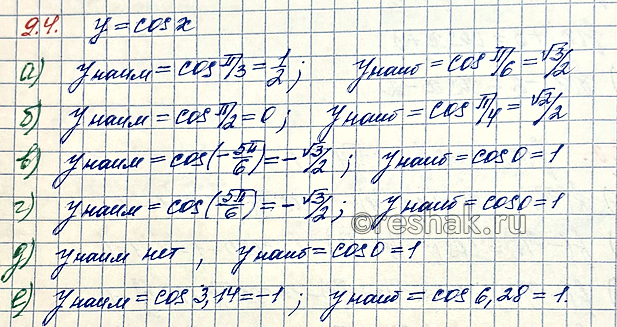 9.4. y = cos x
а) y наим = cos π/3 = 1/2; y наиб = cos π/6 = √3/2
б) y наим = cos π/2 = 0; y наиб = cos π/4 = √2/2
в) y наим = cos(-5π/6) = -√3/2; y наиб = cos 0 = 1
г) y наим = cos(5π/6) = -√3/2; y наиб = cos 0 = 1
©reshak.ru
д) y наим нет, y наиб = cos 0 = 1
е) y наим = cos 3,14 = -1; y наиб = cos 6,28 = 1.